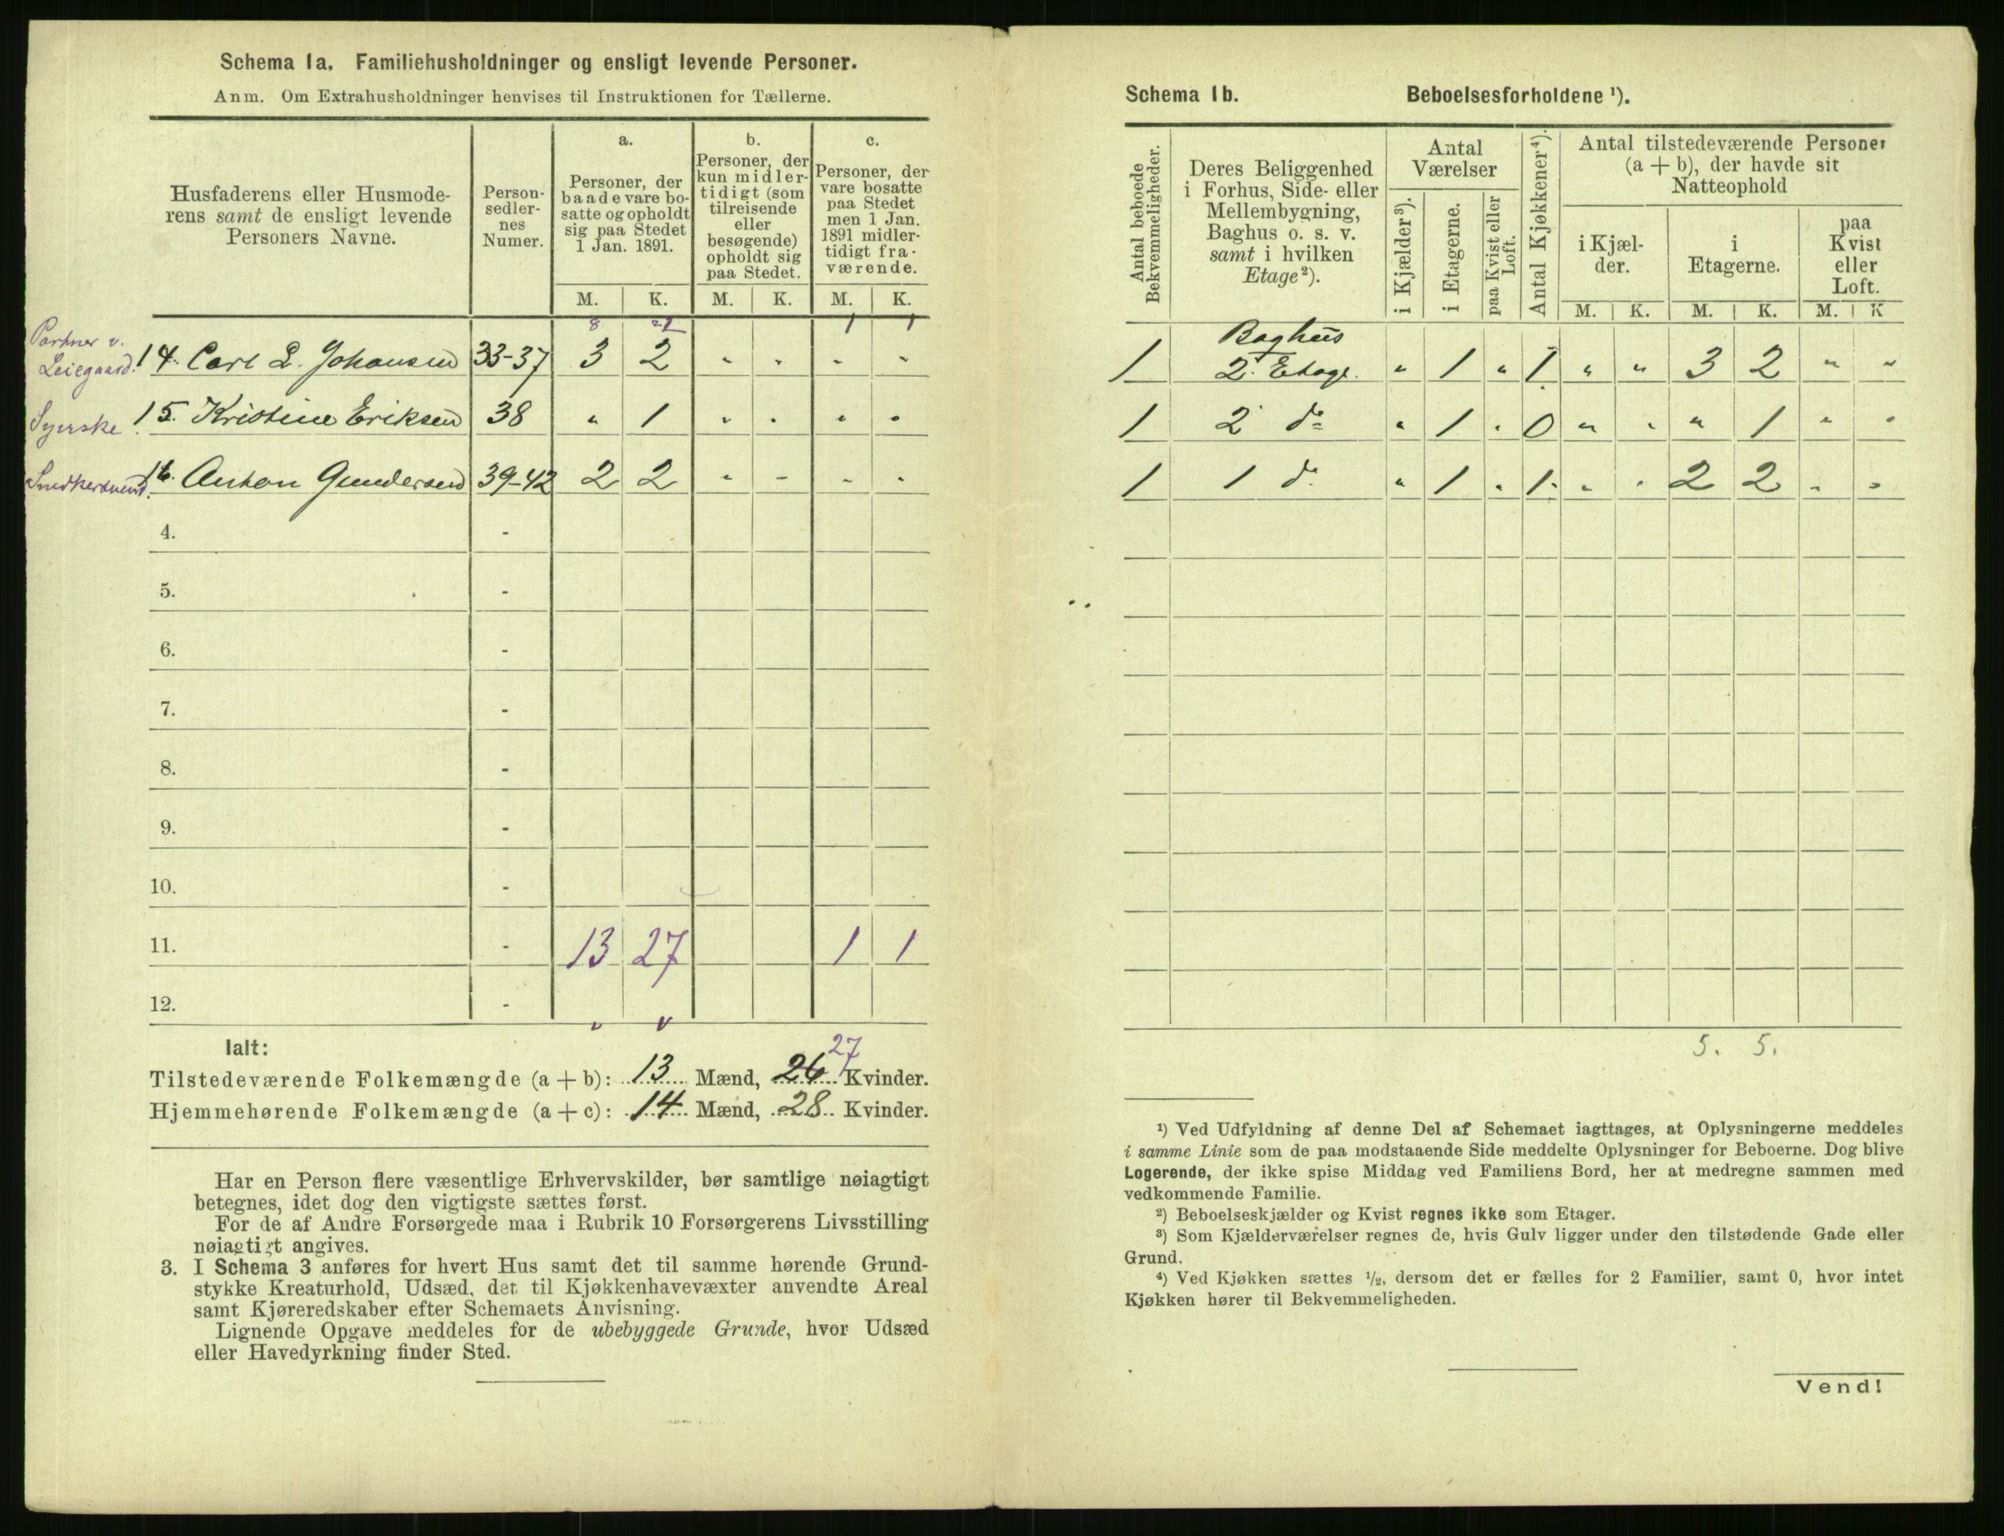 Schema 1a. Familiehusholdninger og ensligt levende Personer.
Anm. Om Extrahusholdninger henvises til Instruktionen for Tællerne.
Husfaderens eller Husmode-
rens samt de ensligt levende
Personers Navne.
Person-
sedler-
nes
Numer.
a.
Personer, der
baade vare bo-
satte og opholdt
sig paa Stedet
1 Jan. 1891.
b.
Personer, der
kun midler-
tidigt (som
tilreisende
eller
besøgende)
opholdt sig
paa Stedet.
c.
Personer, der
vare bosatte
paa Stedet
men 1 Jan.
1891 midler-
tidigt fra-
værende.
M. K. M. K. M. K.
8 22 1 1
Portner v.
Leiegaard. 14. Carl L. Johansen 33-37 3 2 " " " "
Syerske 15. Kristine Eriksen 38 " 1 " " " "
16. Anton Gundersen 39-42 2 2 " " " "
4. -
5. -
6. -
7. -
8. -
9. -
10. -
11. - 13 27 1 1
12. -
Ialt:
27
Tilstedeværende Folkemængde (a + b): 13 Mænd, 26 Kvinder.
Hjemmehørende Folkemængde (a + c): 14 Mænd, 28 Kvinder.
Har en Person flere væsentlige Erhvervskilder, bør samtlige nøiagtigt
betegnes, idet dog den vigtigste sættes først.
For de af Andre Forsørgede maa i Rubrik 10 Forsørgerens Livsstilling
nøiagtigt angives.
3. I Schema 3 anføres for hvert Hus samt det til samme hørende Grund-
stykke Kreaturhold, Udsæd, det til Kjøkkenhavevæxter anvendte Areal
samt Kjøreredskaber efter Schemaets Anvisning.
Lignende Opgave meddeles for de ubebyggede Grunde, hvor Udsæd
eller Havedyrkning finder Sted.
Schema 1b. Beboelsesforholdene ¹).
Antal beboede
Bekvemmeligheder.
Deres Beliggenhed
i Forhus, Side- eller
Mellembygning,
Baghus o. s. v.
samt i hvilken
Etage ²).
Antal
Værelser
i Kjælder ³).
i Etagerne.
paa Kvist eller
Loft.
Antal Kjøkkener ⁴).
Antal tilstedeværende Personer
(a + b), der havde sit
Natteophold
i Kjæl-
der.
i
Etagerne.
paa
Kvist
eller
Loft.
M. K. M. K. M. K
Baghus
1 2. Etage. " 1 " 1 " " 3 2 " "
1 2 do " 1 " 0 " " " 1 " "
1 1 do " 1 " 1 " " 2 2 " "
5. 5.
¹) Ved Udfyldning af denne Del af Schemaet iagttages, at Oplysningerne meddeles
i samme Linie som de paa modstaaende Side meddelte Oplysninger for Beboerne. Dog blive
Logerende, der ikke spise Middag ved Familiens Bord, her at medregne sammen med
vedkommende Familie.
²) Beboelseskjælder og Kvist regnes ikke som Etager.
³) Som Kjælderværelser regnes de, hvis Gulv ligger under den tilstødende Gade eller
Grund.
⁴) Ved Kjøkken sættes ½, dersom det er fælles for 2 Familier, samt 0, hvor intet
Kjøkken hører til Bekvemmeligheden.
Vend!